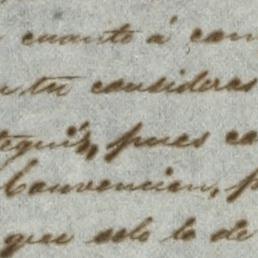 cuanto á cam
tu consideras
pues co
Convencion, p
que solo lo de